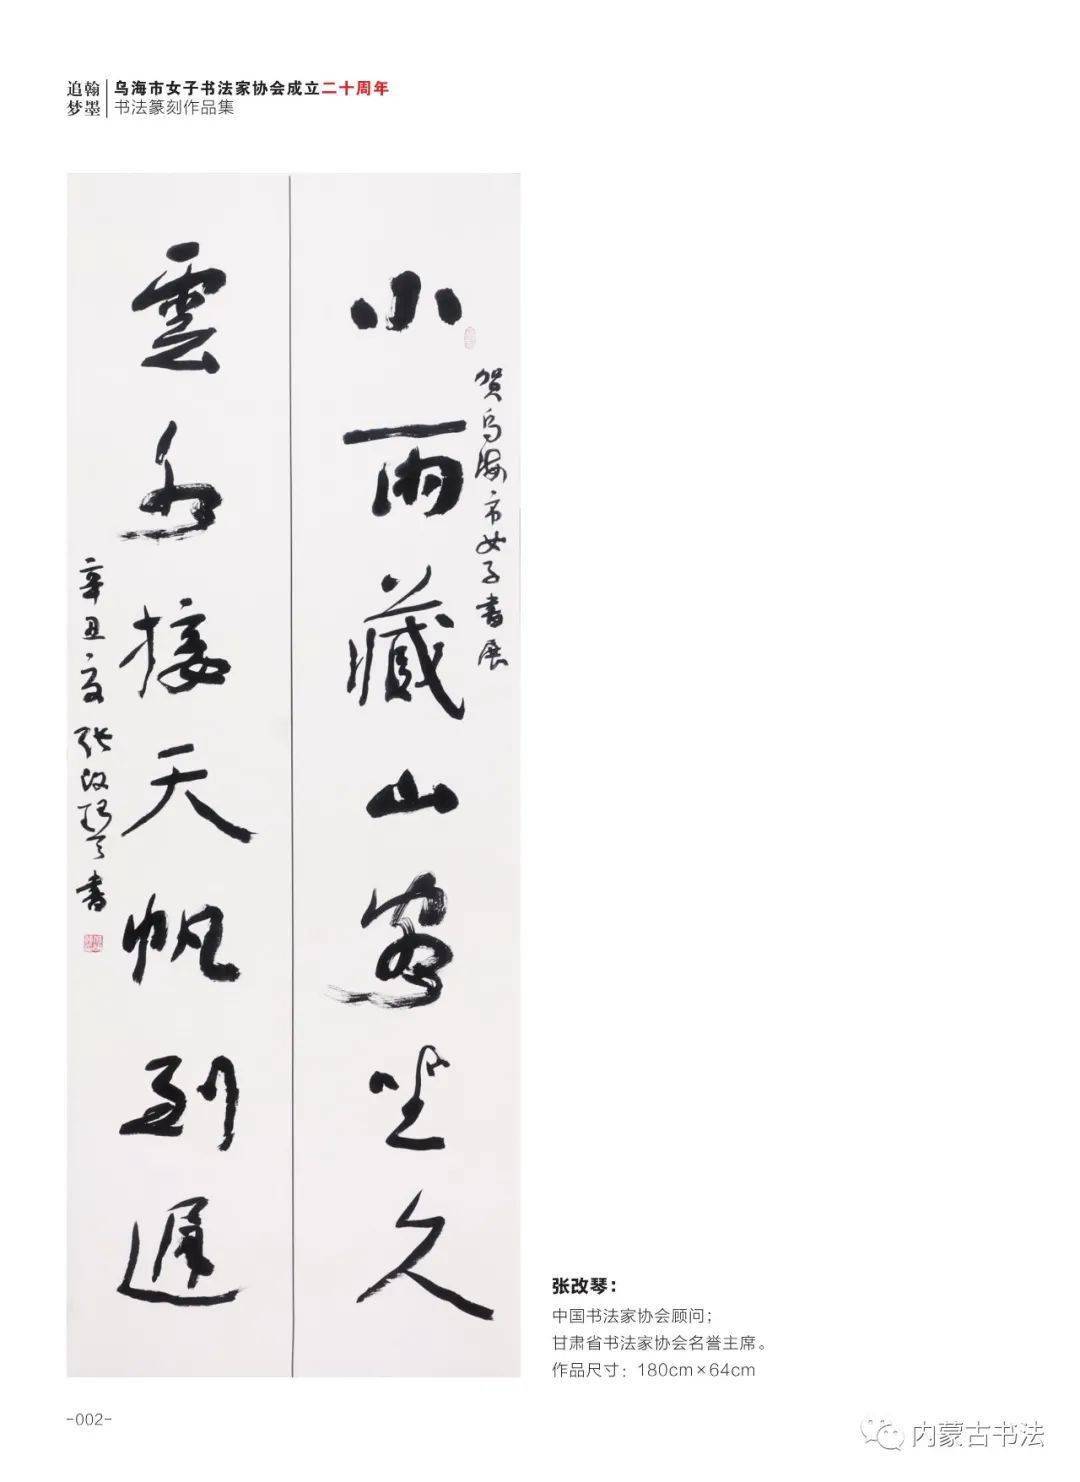 翰墨
追梦
乌海市女子书法家协会成立二十周年
书法篆刻作品集
贺乌海市女子書展
小雨藏山客坐久
雲接天帆到遲
辛丑夏张改琴書
张改琴：
中国书法家协会顾问；
甘肃省书法家协会名誉主席。
作品尺寸：180cm×64cm
-002-
内蒙古书法